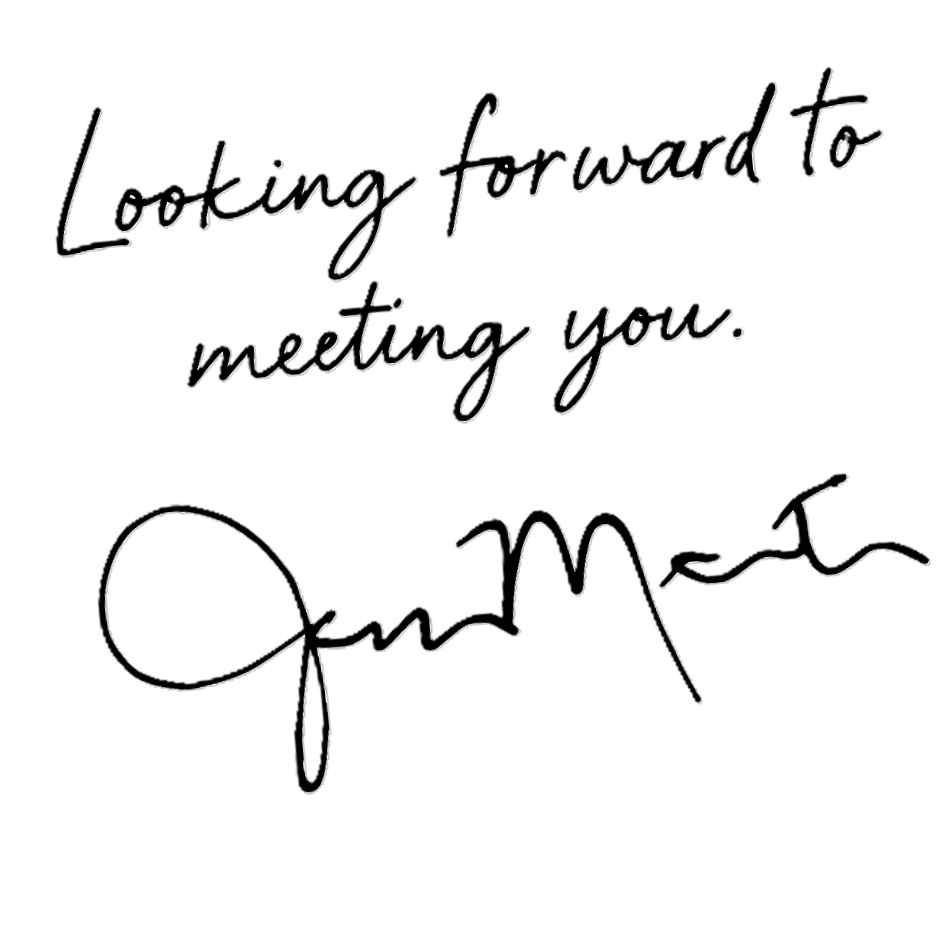 Looking forward to
meeting you.